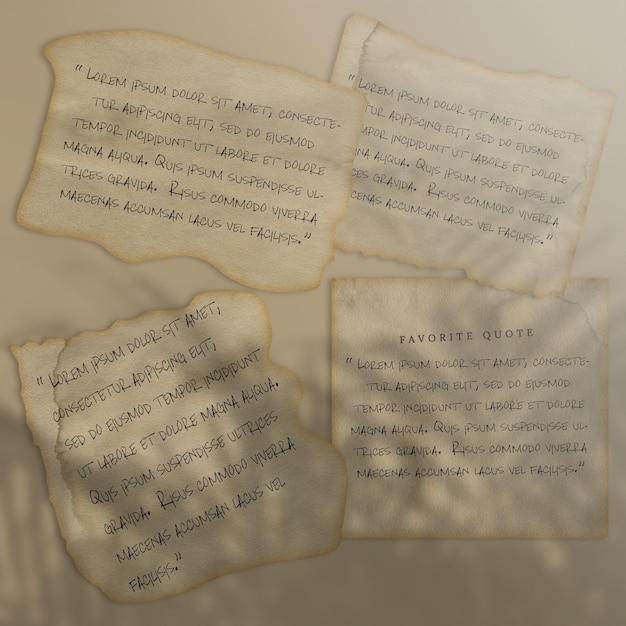 “ Lorem ipsum dolor sit amet, consecte-
tur adipiscing elit, sed do eiusmod
tempor incididunt ut labore et dolore
magna aliqua. Quis ipsum suspendisse ul-
trices gravida. Risus commodo viverra
maecenas accumsan lacus vel facilisis.”
“ Lorem ipsum dolor sit amet, consecte-
tur adipiscing elit, sed do eiusmod
mpor incididunt ut labore et dolore
na aliqua. Quis ipsum suspendisse ul-
ces gravida. Risus commodo viverra
cenas accumsan lacus vel facilisis.”
“ Lorem ipsum dolor sit amet,
consectetur adipiscing elit,
sed do eiusmod tempor incididunt
ut labore et dolore magna aliqua.
Quis ipsum suspendisse ultrices
gravida. Risus commodo viverra
maecenas accumsan lacus vel
facilisis.”
FAVORITE QUOTE
“ Lorem ipsum dolor sit amet, consecte-
tur adipiscing elit, sed do eiusmod
tempor incididunt ut labore et dolore
magna aliqua. Quis ipsum suspendisse ul-
trices gravida. Risus commodo viverra
maecenas accumsan lacus vel facilisis.”